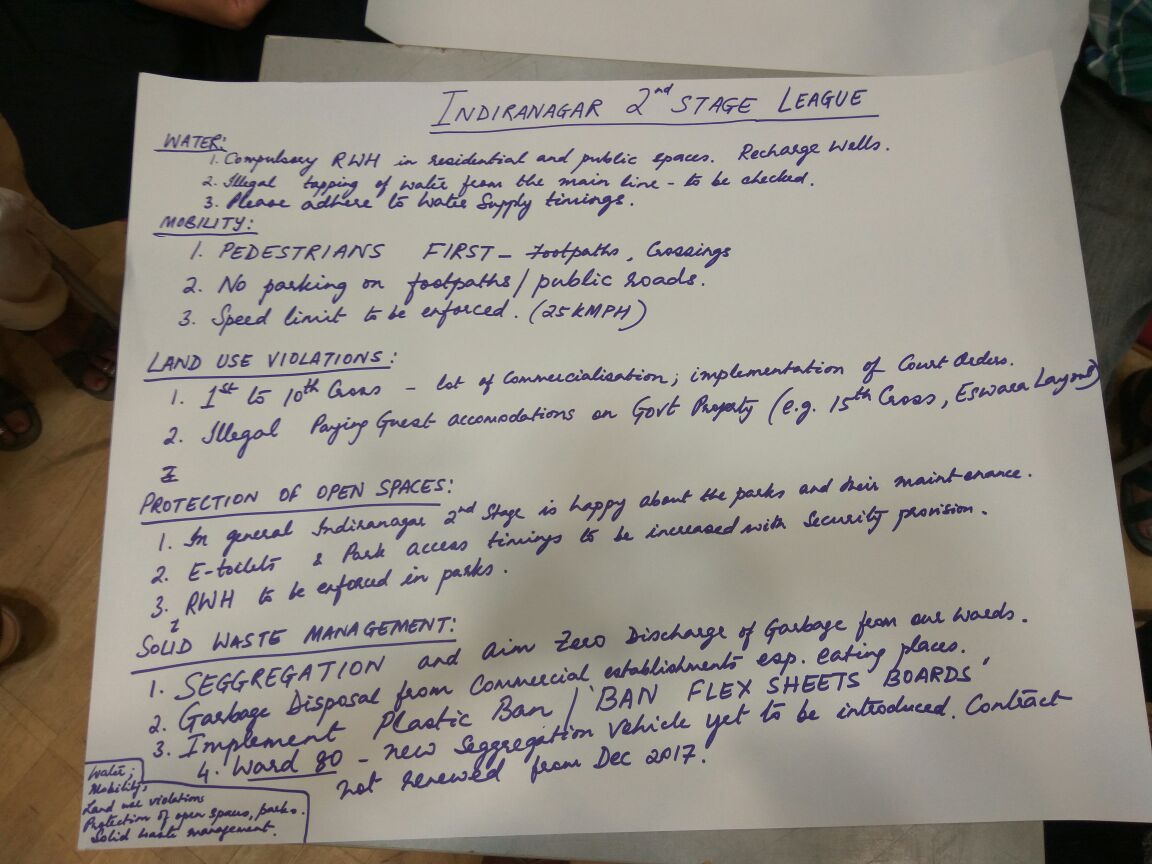 INDIRANAGAR 2nd STAGE LEAGUE
WATER:
1. Compulsory RWH in residential and public spaces. Recharge Wells.
2. Illegal tapping of water from the main line - to be checked.
3. Please adhere to Water Supply timings.
MOBILITY:
1. PEDESTRIANS FIRST - Footpaths, Crossings
2. No parking on footpaths / public roads.
3. Speed limit to be enforced. (25 KMPH)
LAND USE VIOLATIONS:
1. 1st to 10th Cross - lot of Commercialisation; implementation of Court Orders.
2. Illegal Paying Guest accomodations on Govt Property (e.g. 15th Cross, Eswara Layout)
PROTECTION OF OPEN SPACES:
1. In general Indiranagar 2nd Stage is happy about the parks and their maintenance.
2. E-toilets & Park access timings to be increased with Security provision.
3. RWH to be enforced in parks.
SOLID WASTE MANAGEMENT:
1. SEGGREGATION and aim Zero Discharge of Garbage from our wards.
2. Garbage Disposal from Commercial establishments esp. eating places.
3. Implement Plastic Ban / 'BAN FLEX SHEETS BOARDS'
4. Ward 80 - new Seggregation vehicle yet to be introduced. Contract
not renewed from Dec 2017.
Water;
Mobility;
Land use violations
Protection of open spaces, parks.
Solid waste management.